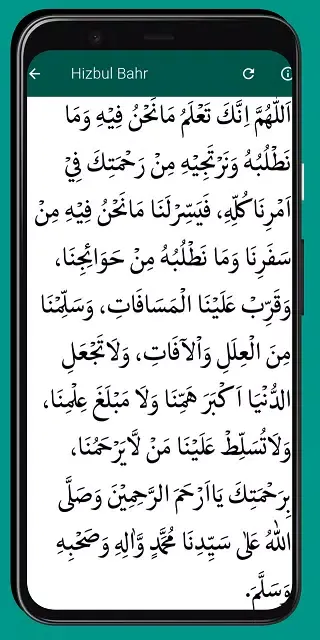 Hizbul Bahr
اَللّٰهُمَّ اِنَّكَ تَعْلَمُ مَانَحْنُ فِيْهِ وَمَا
نَطْلُبُهُ وَنَرْتَجِيْهِ مِنْ رَحْمَتِكَ فِيْ
اَمْرِنَا كُلِّهِ، فَيَسِّرْلَنَا مَانَحْنُ فِيْهِ مِنْ
سَفَرِنَا وَمَا نَطْلُبُهُ مِنْ حَوَائِجِنَا،
وَقَرِّبْ عَلَيْنَا الْمَسَافَاتِ، وَسَلِّمْنَا
مِنَ الْعِلَلِ وَاْلآفَاتِ، وَلَاتَجْعَلِ
الدُّنْيَا اَكْبَرَ هَمِّنَا وَلَا مَبْلَغَ عِلْمِنَا،
وَلَاتُسَلِّطْ عَلَيْنَا مَنْ لَّايَرْحَمُنَا،
بِرَحْمَتِكَ يَااَرْحَمَ الرَّحِمِيْنَ وَصَلَّى
اللهُ عَلٰى سَيِّدِنَا مُحَمَّدٍ وَّاٰلِهِ وَصَحْبِهِ
وَسَلَّمَ.